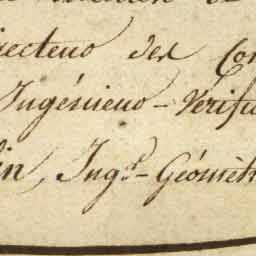 recteur des Con
Ingénieur-Vérific
lin, Ingr.-Géomèt